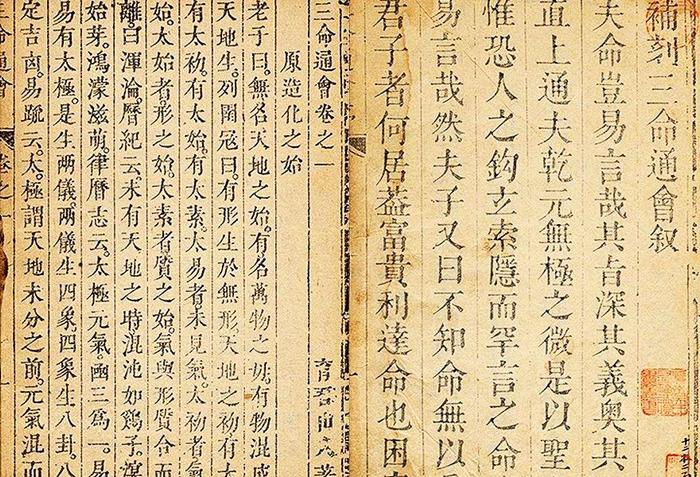 補刻三命通會叙
夫命豈易言哉其旨深其義奥其
直上通夫乾元無極之微是以聖
惟恐人之鈎玄索隱而罕言之命
易言哉然夫子又曰不知命無以
君子者何居葢富貴利達命也困
三命通會卷之一
原造化之始
老子曰。無名天地之始。有名萬物之母。有物混成
天地生。列圄冦曰。有形生於無形。天地之初有太
有太初有太始。有太素。太易者。未見氣。太初者氣
始。太始者。形之始。太素者。質之始。氣與形質合而
離曰渾淪。曆紀云。未有天地之時。混沌如鷄子。溟
始芽。鴻濛滋萌。律曆志云。太極元氣。函三爲一。易
易有太極。是生兩儀。兩儀生四象。四象生八卦。八
定吉凶。易䟽云。太極謂天地未分之前。元氣混而
命通會 卷之一